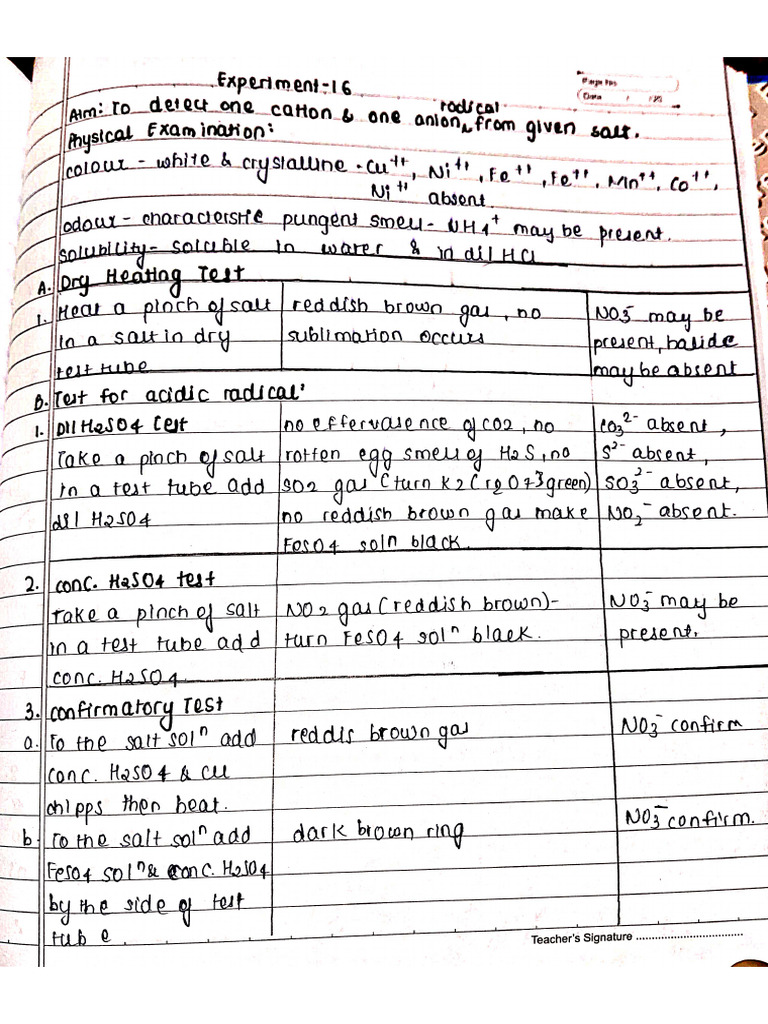 Experiment:-16
Page No.
Date / /20
Aim: To detect one cation & one anion radical from given salt.
Physical Examination:
colour - white & crystalline - Cu++, Ni++, Fe++, Fe++, Mn++, Co++,
Ni++ absent.
odour - characterstic pungent smell - NH4+ may be present.
solubility - soluble in water & in dil HCl
A. Dry Heating Test
1. Heat a pinch of salt reddish brown gas, no NO3- may be
in a salt in dry sublimation occurs present, halide
test tube may be absent
B. Test for acidic radical:
1. Dil H2SO4 test no effervasence of CO2, no CO3 2- absent,
Take a pinch of salt rotten egg smell of H2S, no S2- absent,
in a test tube add SO2 gas (turn K2Cr2O7 green) SO3 2- absent,
dil H2SO4 no reddish brown gas make NO2- absent.
FeSO4 soln black.
2. conc. H2SO4 test
Take a pinch of salt NO2 gas (reddish brown)- NO3- may be
in a test tube add turn FeSO4 soln black. present.
conc. H2SO4
3. confirmatory Test
a. To the salt soln add reddis brown gas NO3- confirm
conc. H2SO4 & Cu
chipps then heat.
b. To the salt soln add dark brown ring NO3- confirm.
FeSO4 soln & conc. H2SO4
by the side of test
tube.
Teacher's Signature